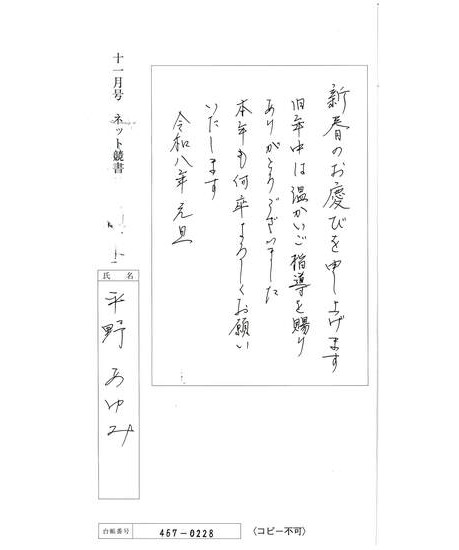 新春のお慶びを申し上げます
旧年中は温かいご指導を賜り
ありがとうございました
本年も何卒よろしくお願い
いたします
令和八年元旦
十一月号 ネット競書
氏名
平野 あゆみ
台帳番号 467-0228 (コピー不可)